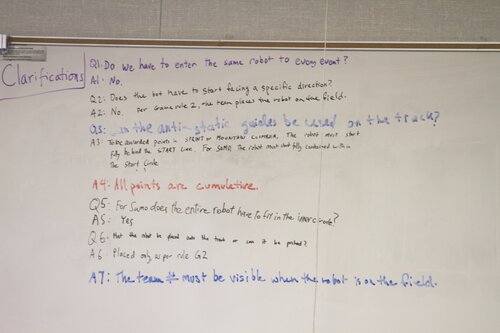 Clarifications
Q1: Do we have to enter the same robot to every event?
A1: No.
Q2: Does the bot have to start facing a specific direction?
A2: No. Per Game rule 2, the team places the robot on the field.
Q3: In the anti-static guides be used on the track?
A3: To be awarded points in SPRINT or MOUNTAIN CLIMBER, The robot must start
fully behind the START Line. For SUMO, The robot must start fully contained within
the Start Circle
A4: All points are cumulative.
Q5: For Sumo does the entire robot have to fit in the inner circle?
A5: Yes
Q6: Must the robot be placed onto the track or can it be pushed?
A6 Placed only as per rule G2
A7: The team # must be visible when the robot is on the field.